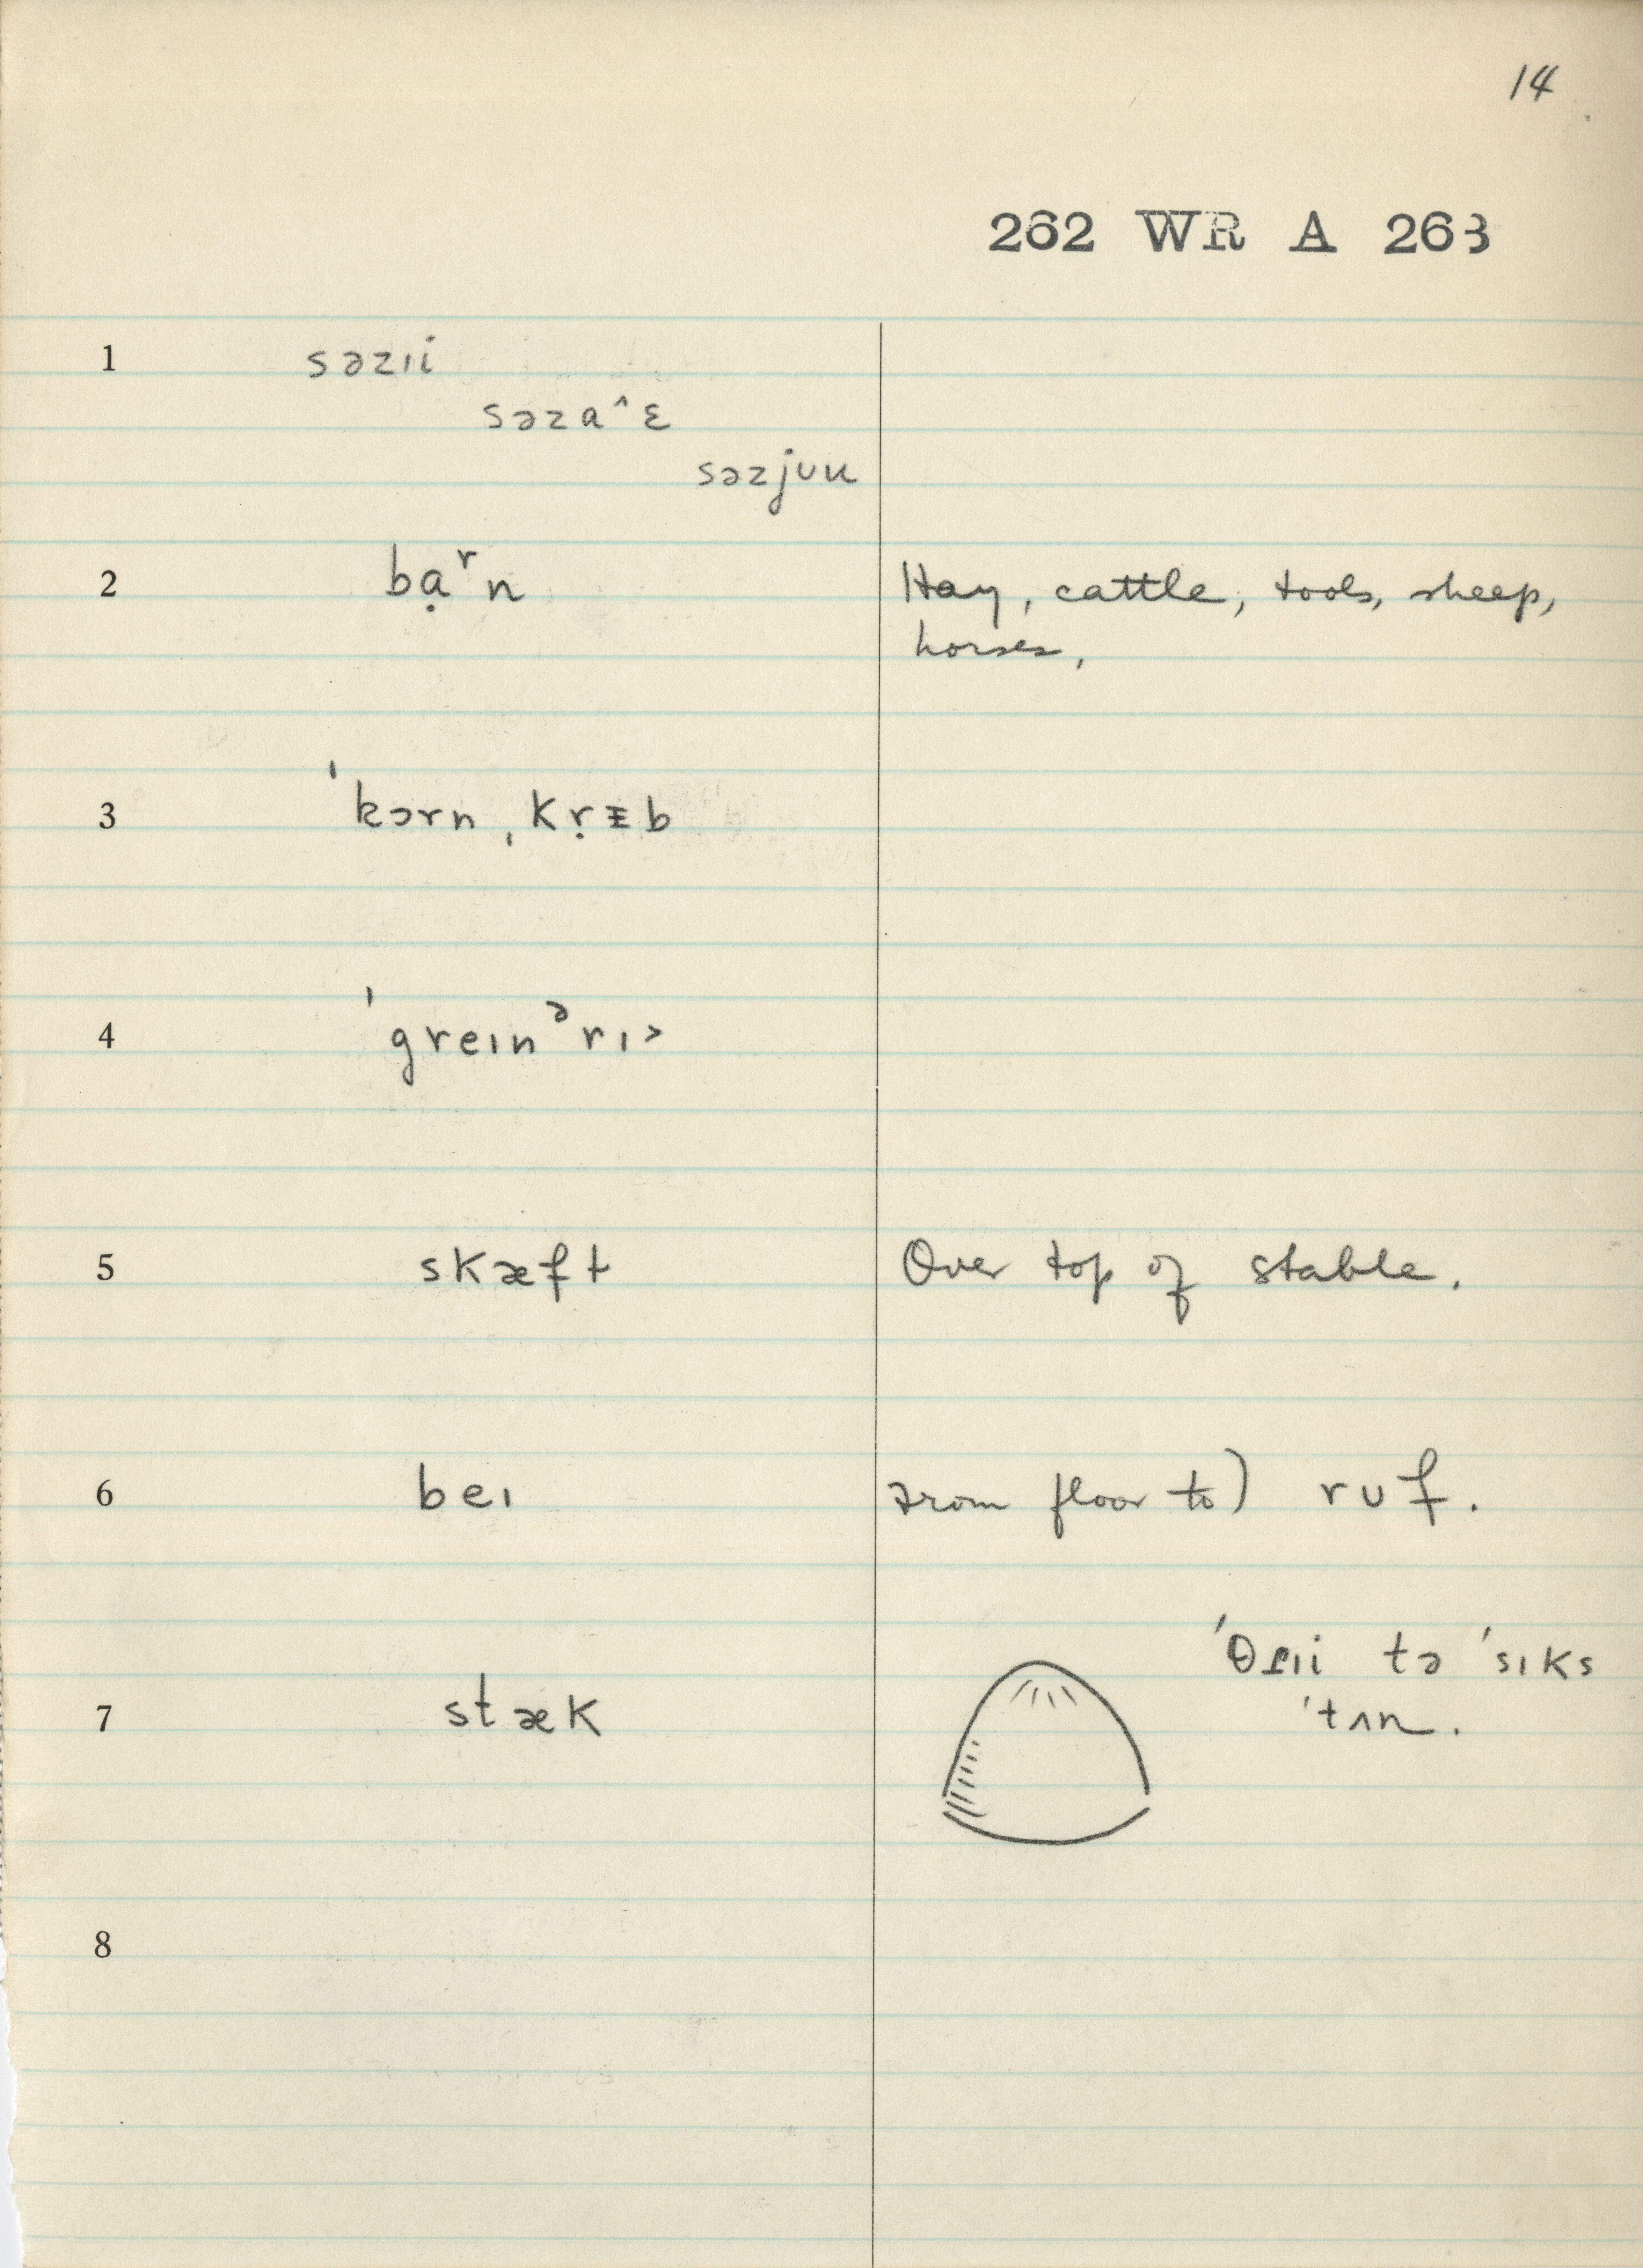 14
262 WR A 263
1 səzıi
səzaˆɛ
səzjuu
2 bạʳn Hay, cattle, tools, sheep,
horses,
3 ˈkɔrn ˌkṛᵻb
4 ˈgreınᵊrı˃
5 skæft Over top of stable.
6 beı from floor to) ruf.
7 stæk ˈθɹıi tə ˈsıks
ˈtʌn.
8